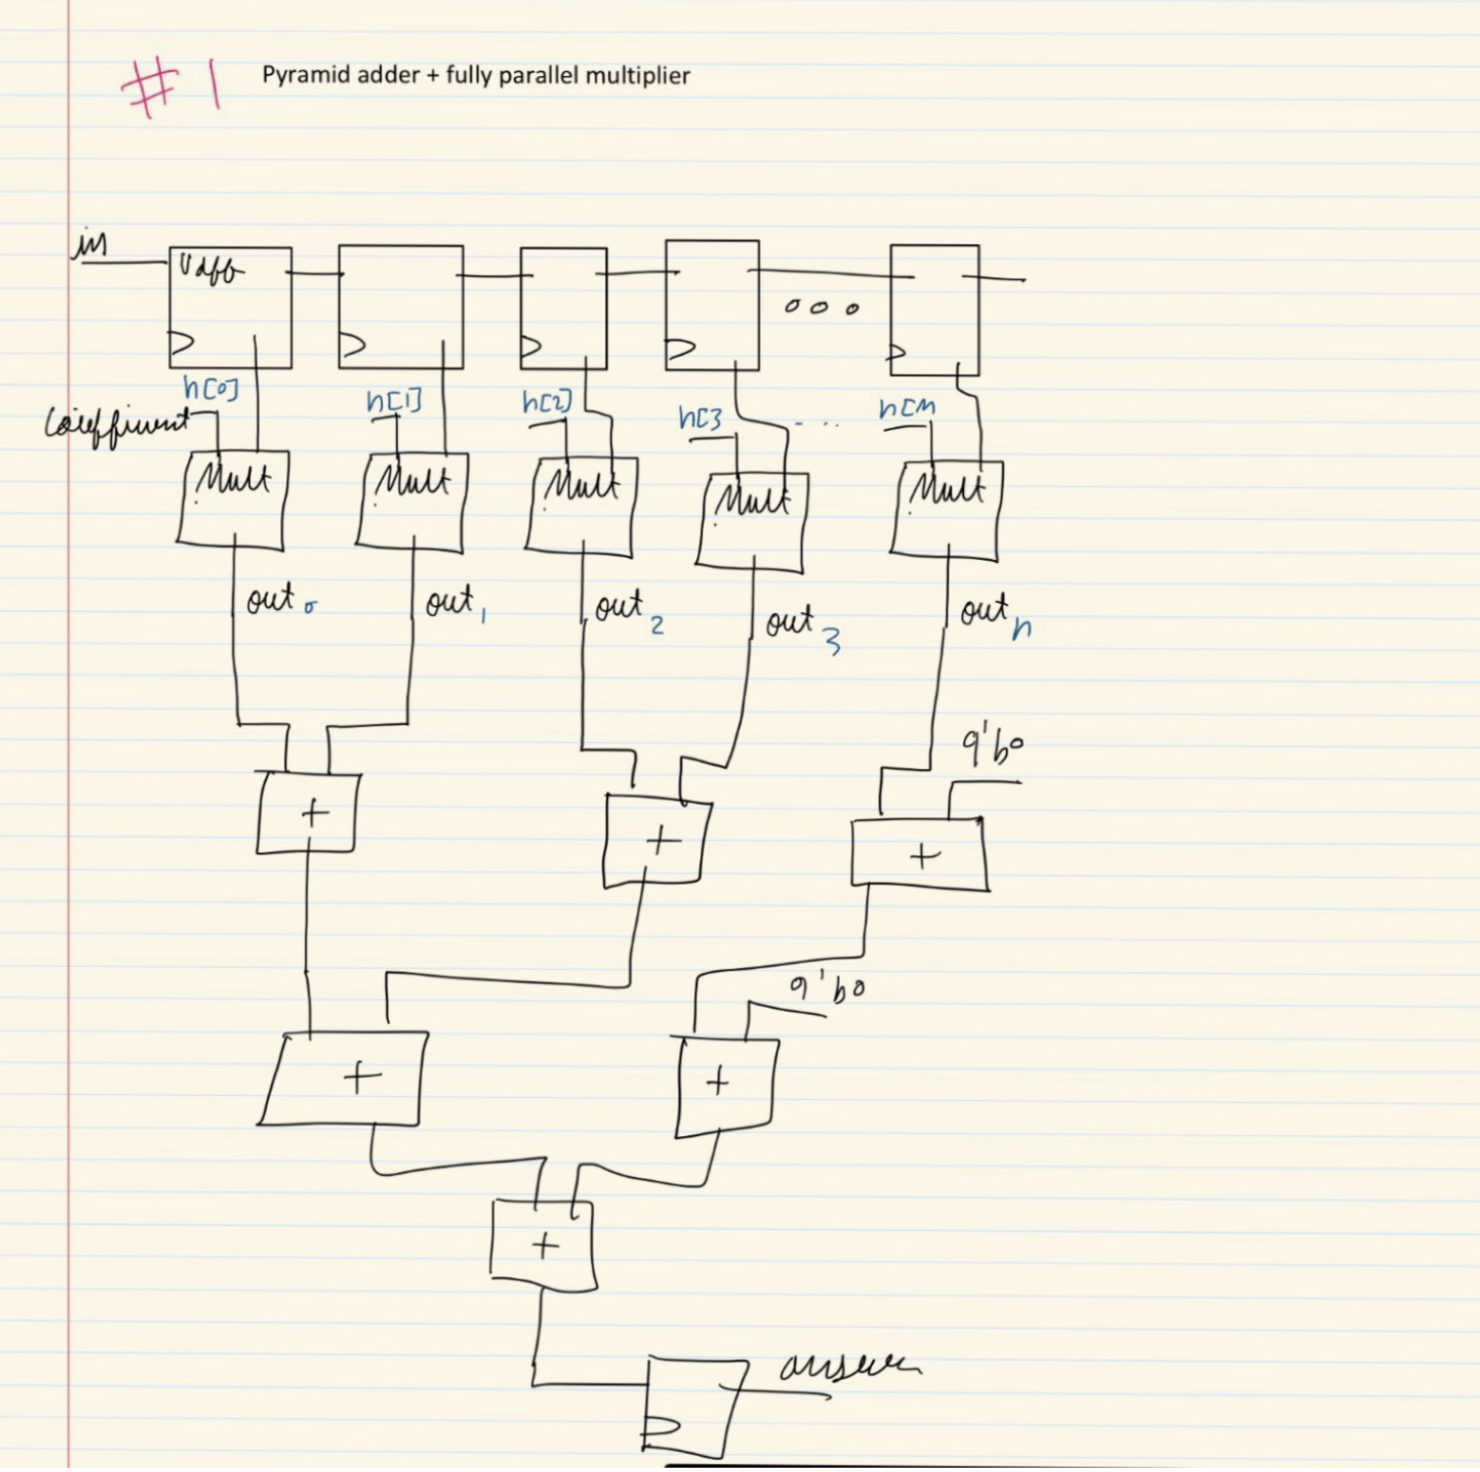 #1 Pyramid adder + fully parallel multiplier
in
h[0] h[1] h[2] h[3 h[n
Coiefficient
Mult Mult Mult Mult Mult
out0 out1 out2 out3 outn
9'b0
+ + +
9'b0
+ +
+
answer